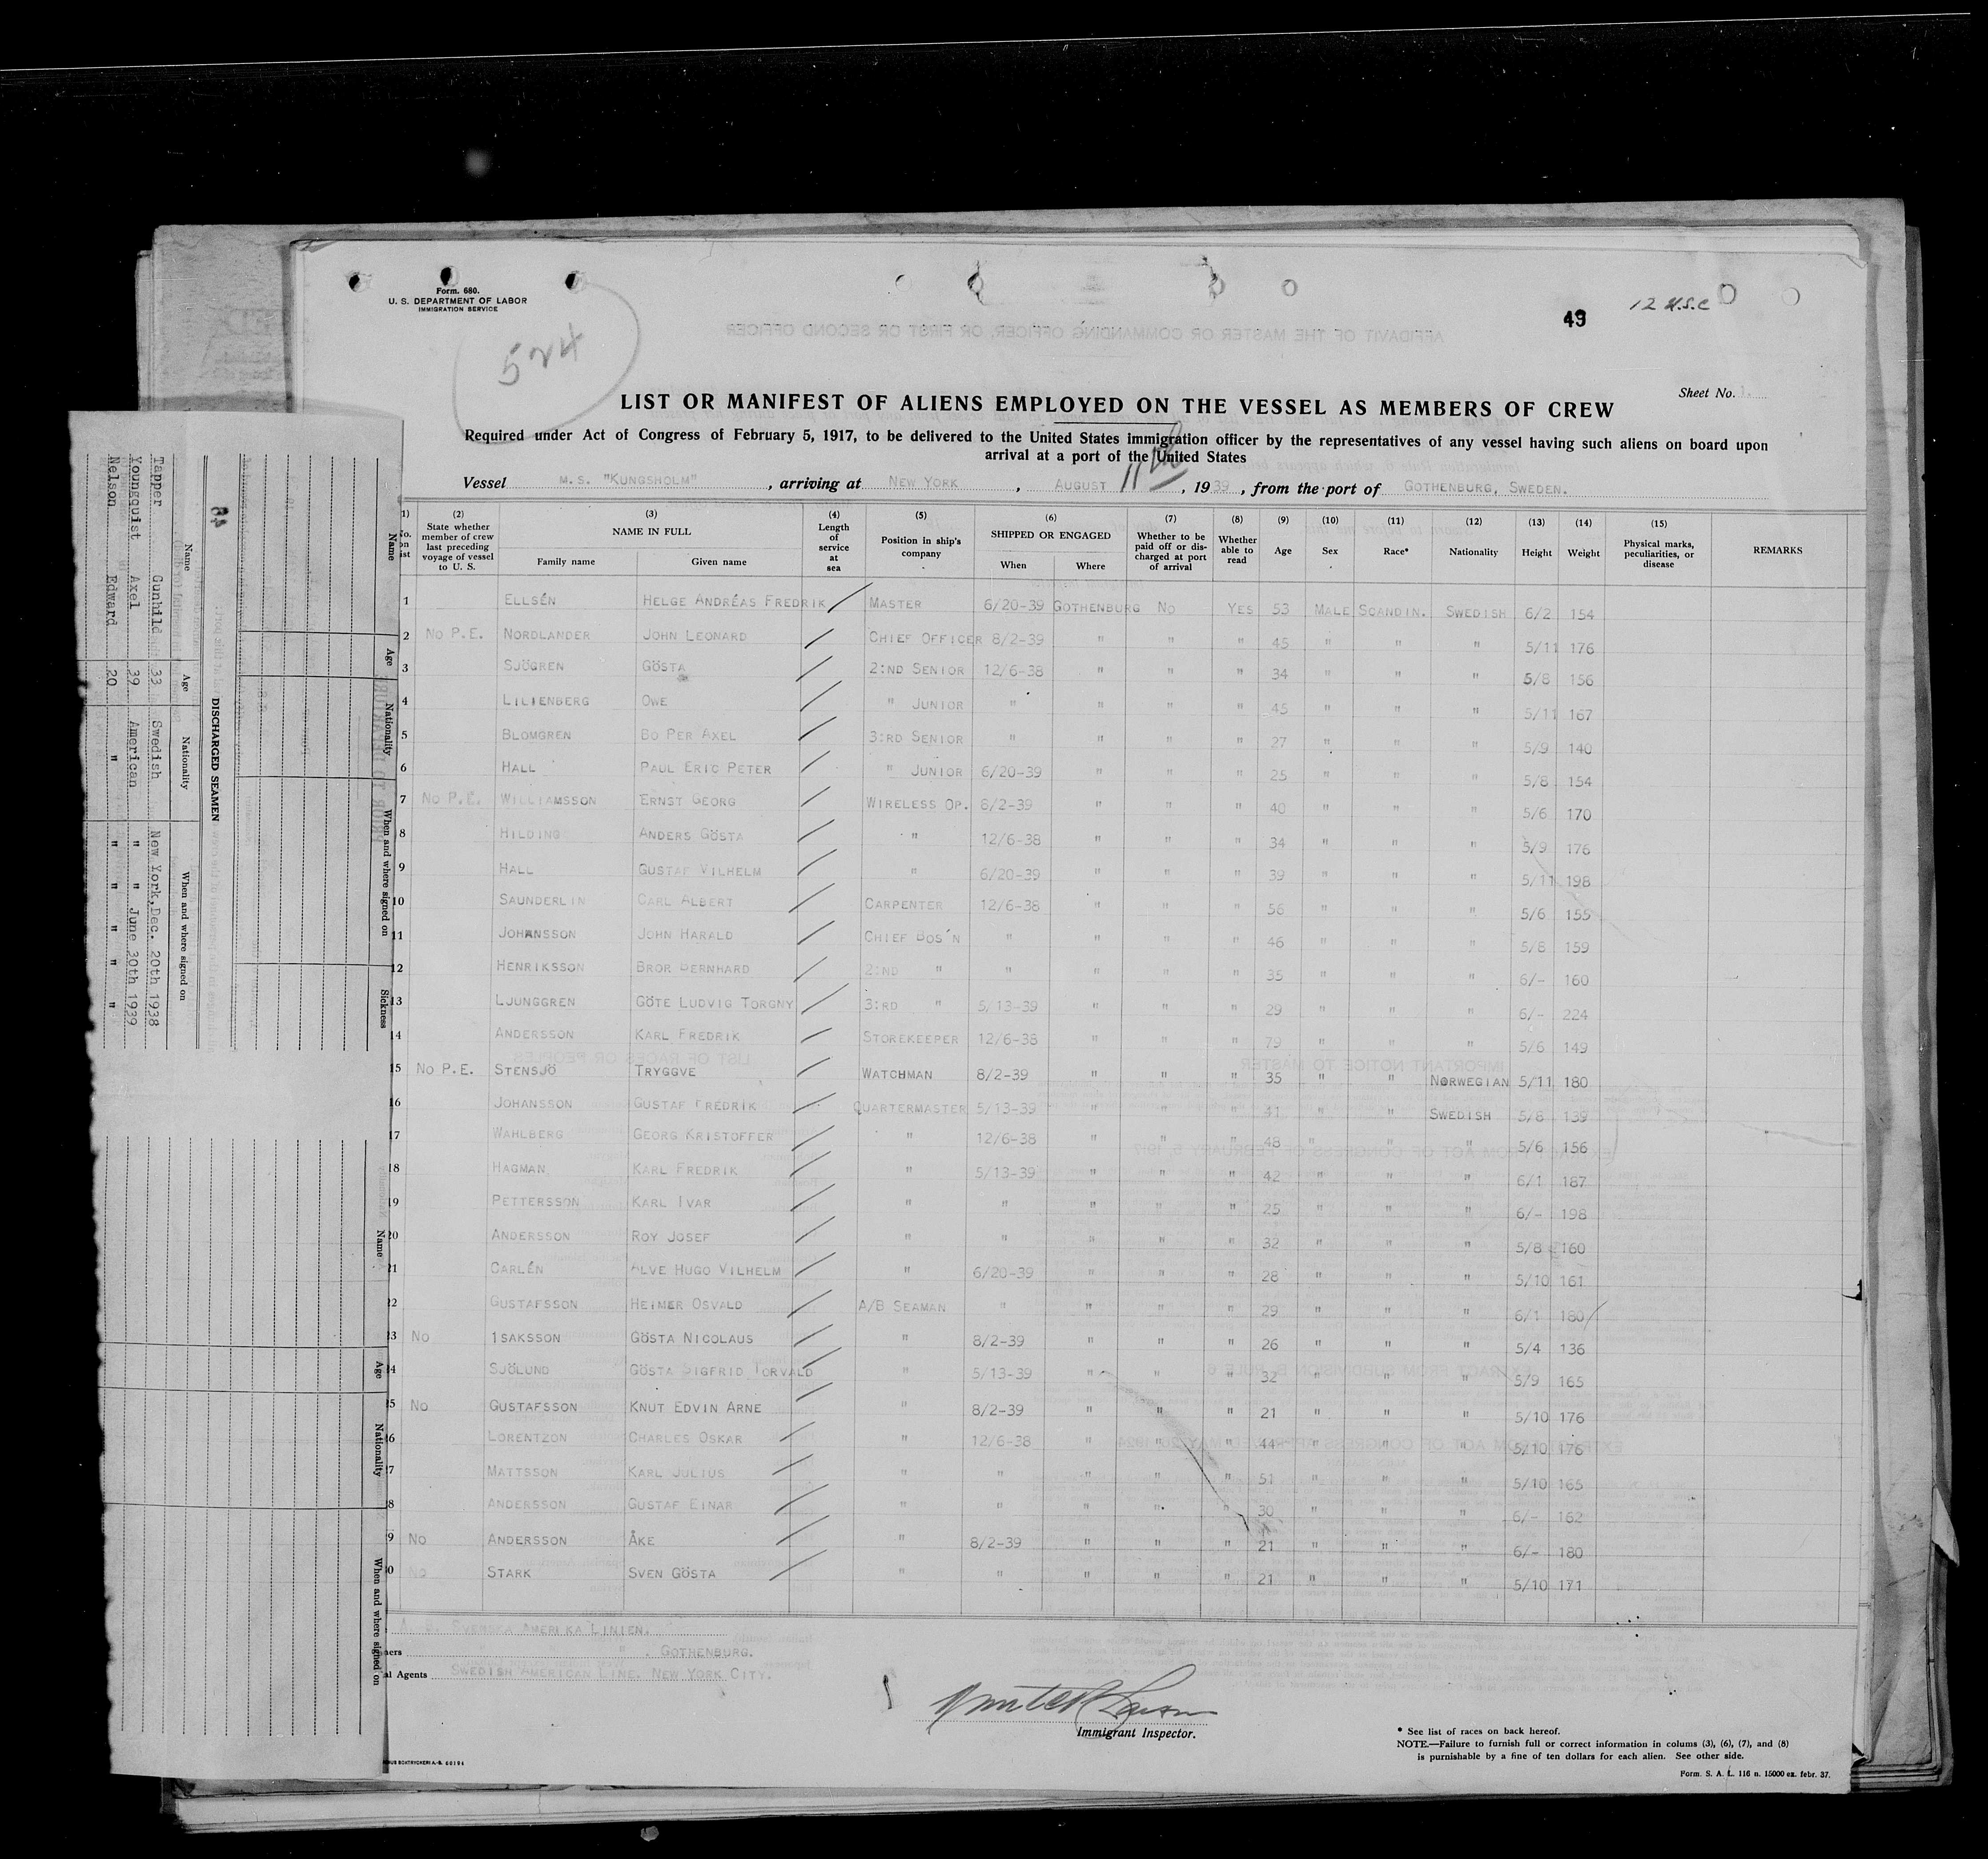 Form. 680.
U. S. DEPARTMENT OF LABOR
IMMIGRATION SERVICE
524
49
12 U.S.C
Sheet No. 1.
LIST OR MANIFEST OF ALIENS EMPLOYED ON THE VESSEL AS MEMBERS OF CREW
Required under Act of Congress of February 5, 1917, to be delivered to the United States immigration officer by the representatives of any vessel having such aliens on board upon
arrival at a port of the United States
Vessel M.S. "KUNGSHOLM", arriving at NEW YORK, AUGUST 11th, 1939, from the port of GOTHENBURG, SWEDEN.
(1) (2) (3) (4) (5) (6) (7) (8) (9) (10) (11) (12) (13) (14) (15)
State whether member of crew last preceding voyage of vessel to U. S. NAME IN FULL Family name Given name Length of service at sea Position in ship's company SHIPPED OR ENGAGED When Where Whether to be paid off or discharged at port of arrival Whether able to read Age Sex Race* Nationality Height Weight Physical marks, peculiarities, or disease REMARKS
1 ELLSÉN HELGE ANDRÉAS FREDRIK / MASTER 6/20-39 GOTHENBURG NO YES 53 MALE SCANDIN. SWEDISH 6/2 154
2 NO P.E. NORDLANDER JOHN LEONARD / CHIEF OFFICER 8/2-39 " " " 45 " " " 5/11 176
3 SJÖGREN GÖSTA / 2:ND SENIOR 12/6-38 " " " 34 " " " 5/8 156
4 LILIENBERG OWE / " JUNIOR " " " " 45 " " " 5/11 167
5 BLOMGREN BO PER AXEL / 3:RD SENIOR " " " " 27 " " " 5/9 140
6 HALL PAUL ERIC PETER / " JUNIOR 6/20-39 " " " 25 " " " 5/8 154
7 NO P.E. WILLIAMSSON ERNST GEORG / WIRELESS OP. 8/2-39 " " " 40 " " " 5/6 170
8 HILDING ANDERS GÖSTA / " 12/6-38 " " " 34 " " " 5/9 176
9 HALL GUSTAF VILHELM / " 6/20-39 " " " 39 " " " 5/11 198
10 SAUNDERLIN CARL ALBERT / CARPENTER 12/6-38 " " " 56 " " " 5/6 155
11 JOHANSSON JOHN HARALD / CHIEF BOS'N " " " " 46 " " " 5/8 159
12 HENRIKSSON BROR BERNHARD / 2:ND " " " " " 35 " " " 6/- 160
13 LJUNGGREN GÖTE LUDVIG TORGNY / 3:RD " 5/13-39 " " " 29 " " " 6/- 224
14 ANDERSSON KARL FREDRIK / STOREKEEPER 12/6-38 " " " 79 " " " 5/6 149
15 NO P.E. STENSJÖ TRYGGVE / WATCHMAN 8/2-39 " " " 35 " " NORWEGIAN 5/11 180
16 JOHANSSON GUSTAF FREDRIK / QUARTERMASTER 5/13-39 " " " 41 " " SWEDISH 5/8 139
17 WAHLBERG GEORG KRISTOFFER / " 12/6-38 " " " 48 " " " 5/6 156
18 HAGMAN KARL FREDRIK / " 5/13-39 " " " 42 " " " 6/1 187
19 PETTERSSON KARL IVAR / " " " " " 25 " " " 6/- 198
20 ANDERSSON ROY JOSEF / " " " " " 32 " " " 5/8 160
21 CARLÉN ALVE HUGO VILHELM / " 6/20-39 " " " 28 " " " 5/10 161
22 GUSTAFSSON HEIMER OSVALD / A/B SEAMAN " " " " 29 " " " 6/1 180/
23 NO ISAKSSON GÖSTA NICOLAUS / " 8/2-39 " " " 26 " " " 5/4 136
24 SJÖLUND GÖSTA SIGFRID TORVALD / " 5/13-39 " " " 32 " " " 5/9 165
25 NO GUSTAFSSON KNUT EDVIN ARNE / " 8/2-39 " " " 21 " " " 5/10 176
26 LORENTZON CHARLES OSKAR / " 12/6-38 " " " 44 " " " 5/10 176
27 MATTSSON KARL JULIUS / " " " " " 51 " " " 5/10 165
28 ANDERSSON GUSTAF EINAR / " " " " " 30 " " " 6/- 162
29 NO ANDERSSON ÅKE / " 8/2-39 " " " 21 " " " 6/- 180
30 NO STARK SVEN GÖSTA / " " " " " 21 " " " 5/10 171
SVENSKA AMERIKA LINIEN.
" . GOTHENBURG.
al Agents SWEDISH AMERICAN LINE. NEW YORK CITY.
Immigrant Inspector.
* See list of races on back hereof.
NOTE.—Failure to furnish full or correct information in colums (3), (6), (7), and (8)
is purnishable by a fine of ten dollars for each alien. See other side.
Form. S. A. L. 116 n. 15000 ex. febr. 37.
DISCHARGED SEAMEN
Name Age Nationality When and where signed on
Tapper Gunhild 33 Swedish New York, Dec. 20th 1938
Youngquist Axel 39 American " " June 30th 1939
Nelson Edward 20 " " " " " "
Name Age Nationality When and where signed on Sickness
Name Age Nationality When and where signed on